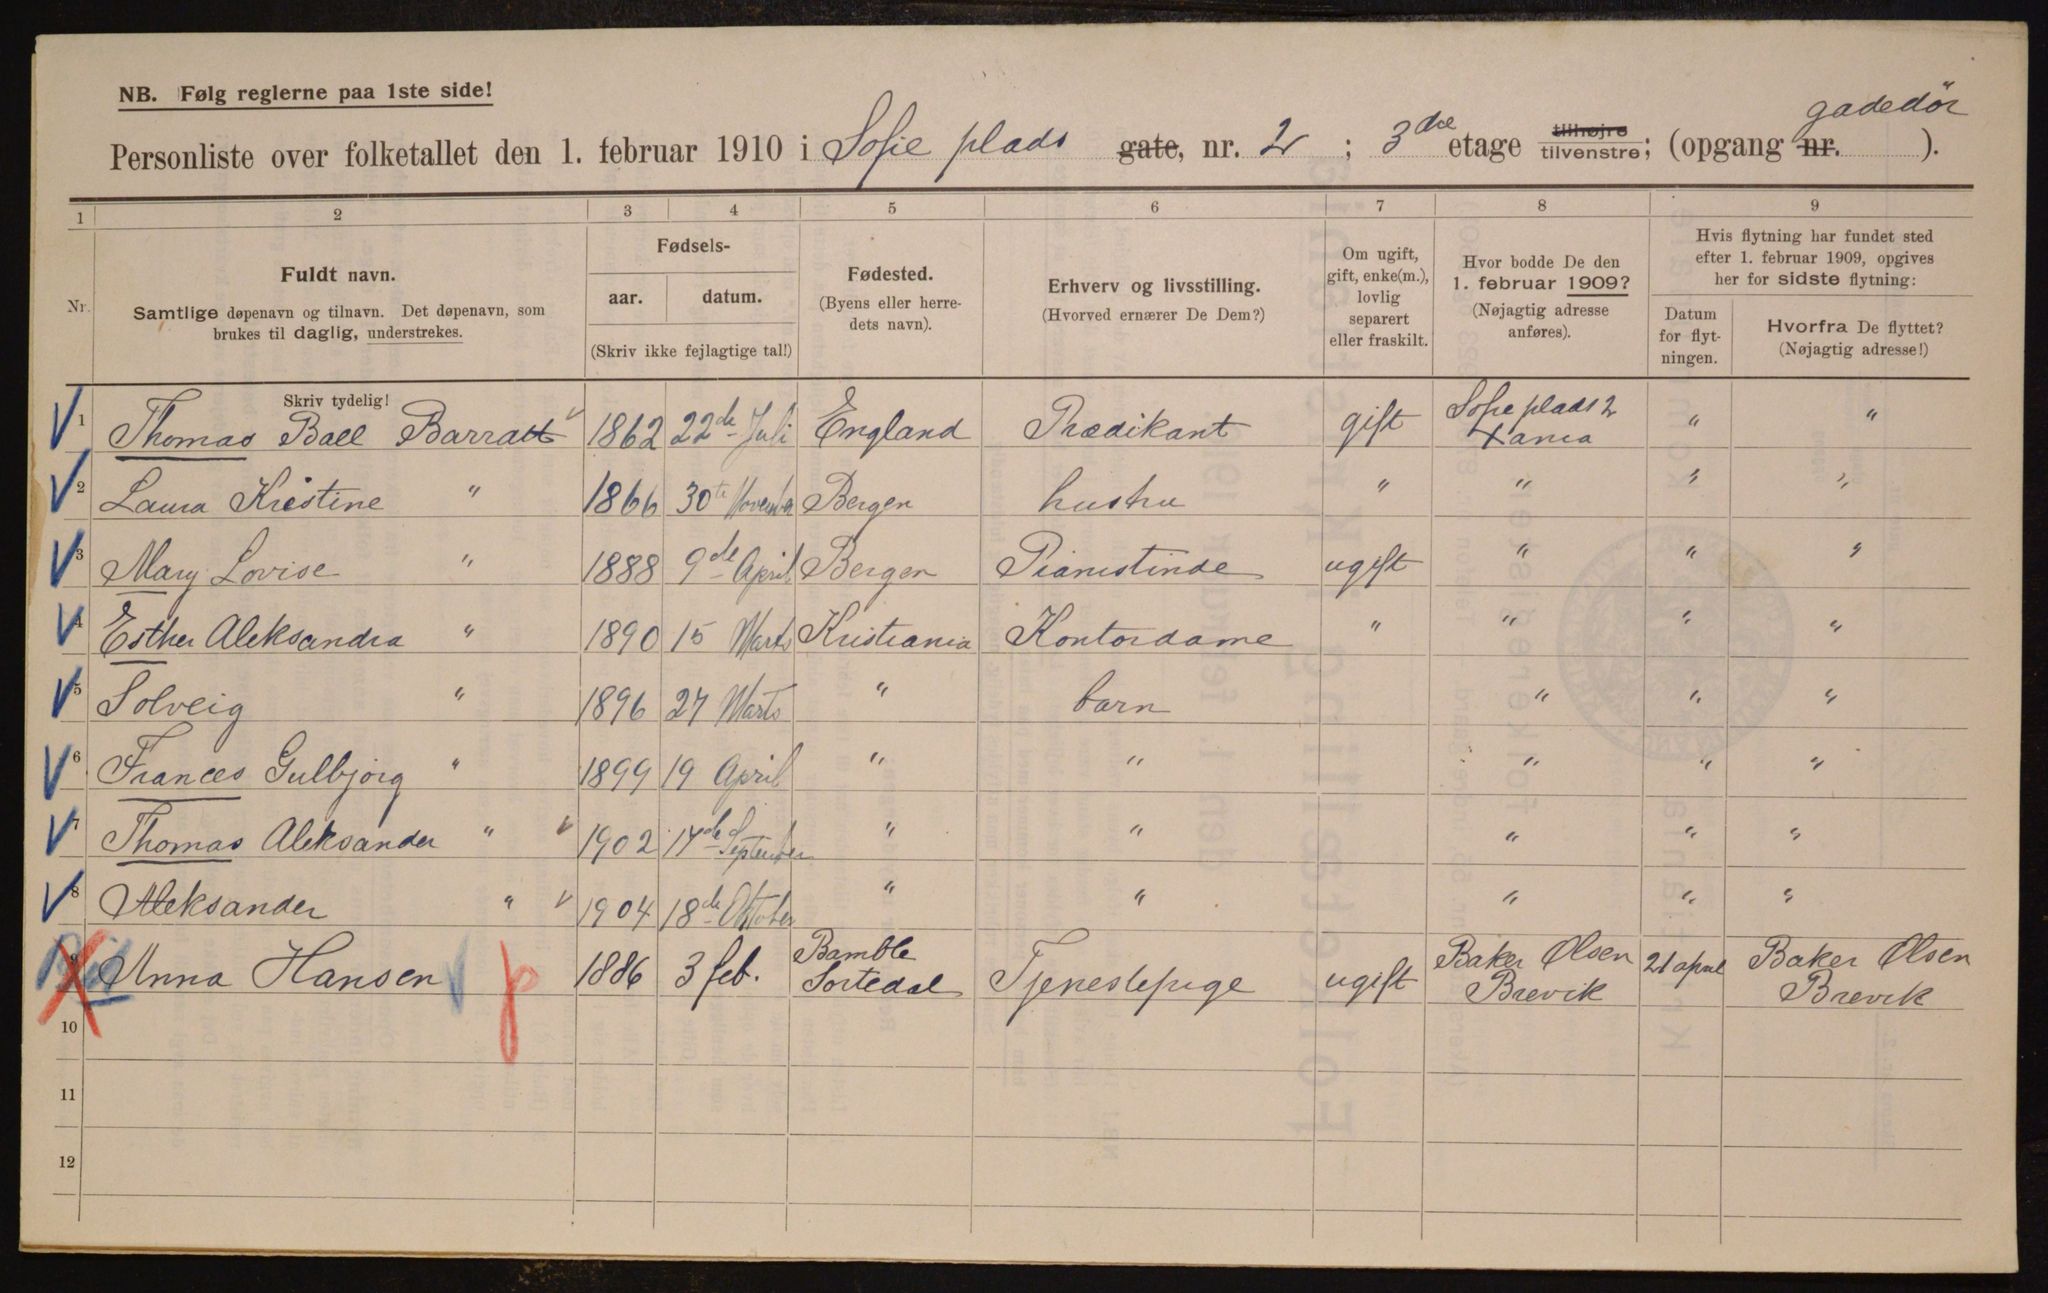 NB. Følg reglerne paa 1ste side!
Personliste over folketallet den 1. februar 1910 i Sofie plads gate, nr. 2 ; 3die etage tilhøjre tilvenstre; (opgang nr. gadedör ).
1 2 3 4 5 6 7 8 9
Nr.
Fuldt navn.
Samtlige døpenavn og tilnavn. Det døpenavn, som
brukes til daglig, understrekes.
Fødsels-
aar. datum.
(Skriv ikke fejlagtige tal!)
Fødested.
(Byens eller herre-
dets navn).
Erhverv og livsstilling.
(Hvorved ernærer De Dem?)
Om ugift,
gift, enke(m.),
lovlig
separert
eller fraskilt.
Hvor bodde De den
1. februar 1909?
(Nøjagtig adresse
anføres).
Hvis flytning har fundet sted
efter 1. februar 1909, opgives
her for sidste flytning:
Datum
for flyt-
ningen.
Hvorfra De flyttet?
(Nøjagtig adresse!)
Skriv tydelig!
1 Thomas Ball Barratt 1862 22de Juli England Prædikant gift Sofie plads 2 Xania " "
2 Laura Kristine " 1866 30te November Bergen hustru " " " "
3 Mary Lovise " 1888 9de April Bergen Pianistinde ugift " " "
4 Esther Aleksandra " 1890 15 Marts Kristiania Kontordame " " " "
5 Solveig " 1896 27 Marts " barn " " "
6 Frances Gulbjörg " 1899 19 April " " " " "
7 Thomas Aleksander " 1902 17de September " " " " "
8 Aleksander " 1904 18de Oktober " " " " "
9 Anna Hansen 1886 3 feb. Bamble Sortedal Tjenestepige ugift Baker Olsen Brevik 21 april Baker Olsen Brevik
10
11
12